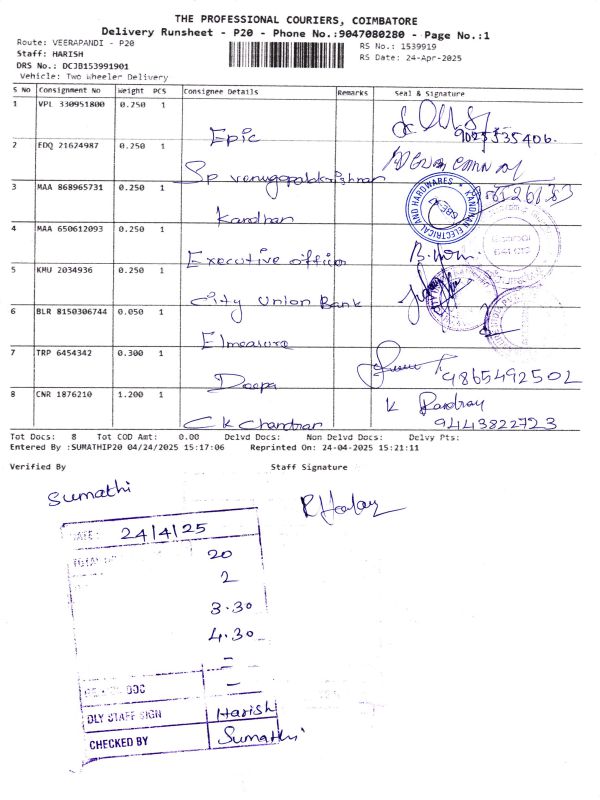 THE PROFESSIONAL COURIERS, COIMBATORE
Delivery Runsheet - P20 - Phone No.:9047080280 - Page No.:1
Route: VEERAPANDI - P20
RS No.: 1539919
Staff: HARISH
RS Date: 24-Apr-2025
DRS No.: DCJB153991901
Vehicle: Two Wheeler Delivery
S No Consignment No Weight PCS Consignee Details Remarks Seal & Signature
1 VPL 330951800 0.250 1 Epic 9025535406.
2 EDQ 21624987 0.250 1 Sp venugopalakrishnan
3 MAA 868965731 0.250 1 Kandhan
KANDHAN ELECTRICAL AND HARDWARES
4 MAA 650612093 0.250 1 Executive officer
5 KMU 2034936 0.250 1 City Union Bank
6 BLR 8150306744 0.050 1 Elmeasure
7 TRP 6454342 0.300 1 Deepa 9865492502
8 CNR 1876210 1.200 1 CK Chandran K 9443822723
Tot Docs: 8 Tot COD Amt: 0.00 Delvd Docs: Non Delvd Docs: Delvy Pts:
Entered By :SUMATHIP20 04/24/2025 15:17:06 Reprinted On: 24-04-2025 15:21:11
Verified By Staff Signature
Sumathi
DATE: 24/4/25
20
2
3.30
4.30
-
DOC -
DLY STAFF SIGN Harish
CHECKED BY Sumathi